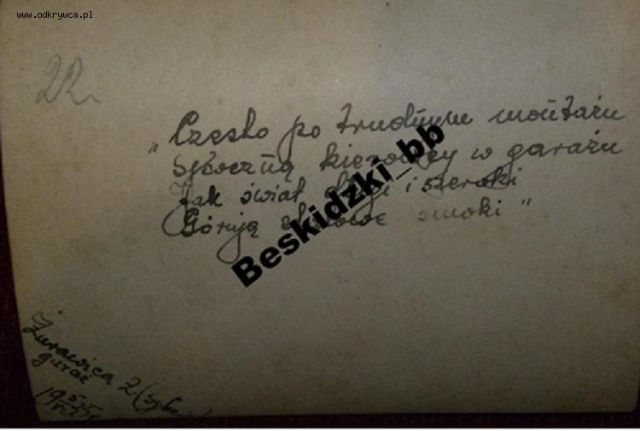 www.odkrywca.pl
22.
"Często po trudnym montażu
Spoczną kierowcy w garażu
Jak świat długi i szeroki
Górują smoki"
Beskidzki_bb
Żurawica 2
garaż